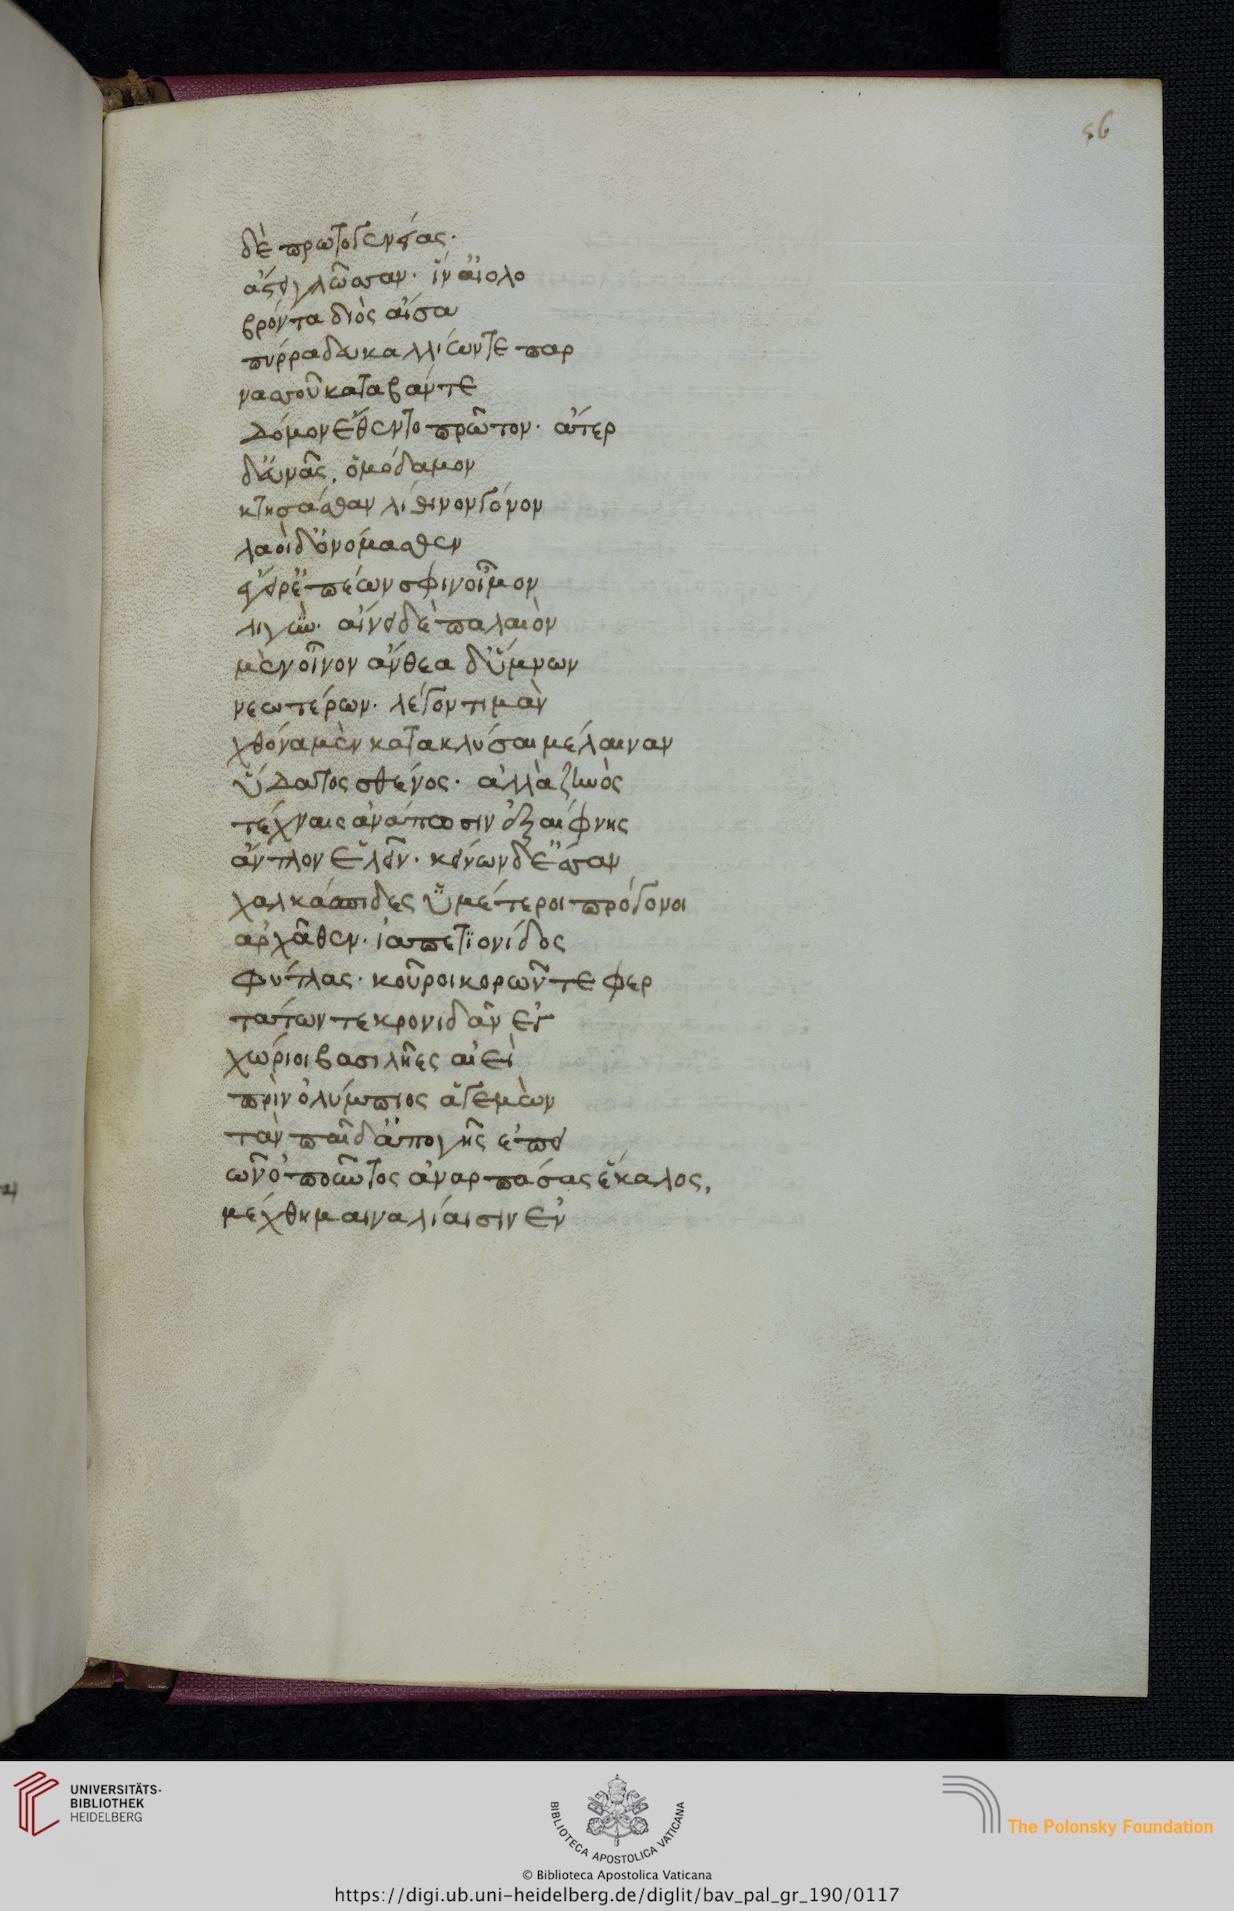 56
δὲ πρωτογενείας·
ἄστει γλῶσσαν· ἵν' αἰολο
βρόντα διὸς αἴσᾳ
πύρρα δευκαλλίων τε παρ
νασσοῦ καταβάντε
δόμον ἔθεντο πρῶτον· ἄτερ
δ' εὐνᾶς, ὁμόδαμον
κτησάσθαν λίθινον γόνον
λαοὶ δ' ὀνόμασθεν
ἔγειρ' ἐπέων σφιν οἶμον
λιγύν· αἴνει δὲ παλαιὸν
μὲν οἶνον ἄνθεα δ' ὕμνων
νεωτέρων· λέγοντι μὰν
χθόνα μὲν κατακλύσαι μέλαιναν
ὕδατος σθένος· ἀλλὰ ζηνὸς
τέχναις ἀνάπωσιν ἐξαίφνης
ἄντλον ἑλεῖν· κείνων δ' ἔσαν
χαλκάσπιδες ὑμέτεροι πρόγονοι
ἀρχᾶθεν· ἰαπετϊονίδος
φύτλας· κοῦροι κορῶν τε φερ
τάτων τε κρονιδᾶν ἐγ
χώριοι βασιλῆες αἰεὶ
πρὶν ὀλύμπιος ἁγεμὼν
τὰν παῖδ' ἀπὸ γῆς ἐπει
ῶν ὀποῦντος ἀναρπάσας ἕκαλος,
μίχθη μαιναλίαισιν ἐν
UNIVERSITÄTS-
BIBLIOTHEK
HEIDELBERG
BIBLIOTECA APOSTOLICA VATICANA
© Biblioteca Apostolica Vaticana
The Polonsky Foundation
https://digi.ub.uni-heidelberg.de/diglit/bav_pal_gr_190/0117